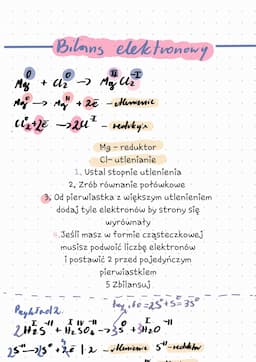 Bilans elektronowy
0 0 II -I
Mg + Cl₂ → Mg Cl₂
Mg⁰ → Mgᴵᴵ + 2e⁻ - utlenianie
Cl₂⁰ + 2e⁻ → 2Cl⁻ᴵ - redukcja
Mg - reduktor
Cl- utlenianie
1. Ustal stopnie utlenienia
2. Zrób równanie połówkowe
3. Od pierwiastka z większym utlenieniem
dodaj tyle elektronów by strony się
wyrównały
4. Jeśli masz w formie cząsteczkowej
musisz podwoić liczbę elektronów
i postawić 2 przed pojedynczym
pierwiastkiem
5 Zbilansuj
Przykład 2.